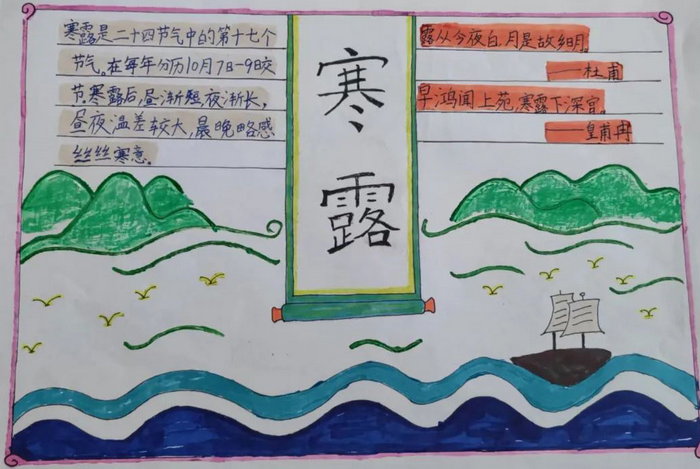 寒露是二十四节气中的第十七个
节气。在每年分历10月7日-9日交
节寒露后,昼渐短,夜渐长,
昼夜温差较大,晨晚略感
丝丝寒意。
寒露
露从今夜白,月是故乡明。
——杜甫
早鸿闻上苑,寒露下深宫。
——皇甫冉